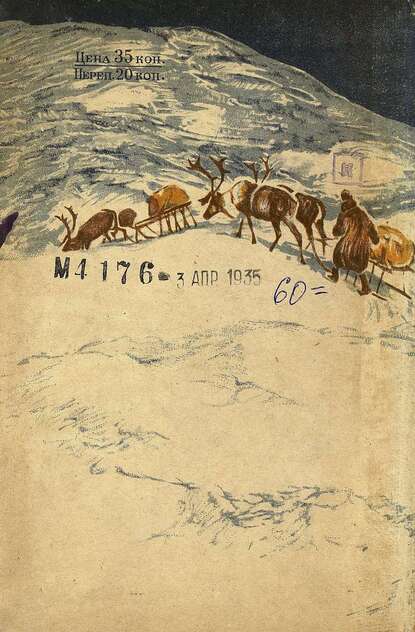 Цена 35 коп.
Переп. 20 коп.
М4176- 3 АПР 1935
60=